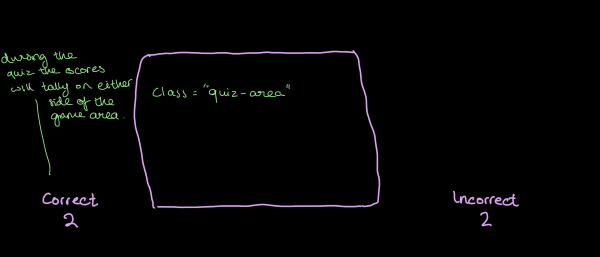 during the
quiz the scores
will tally on either
side of the
game area.
Class = "quiz-area"
Correct
2
Incorrect
2